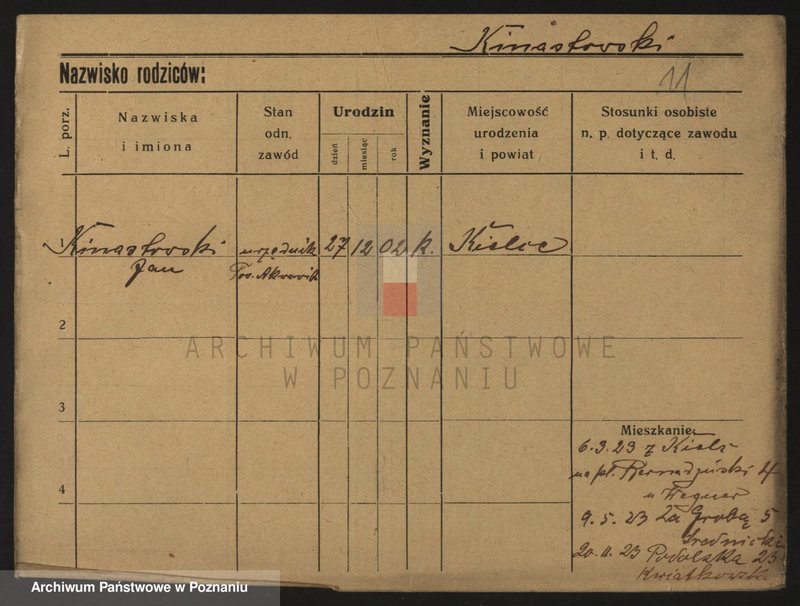 Kinastowski
Nazwisko rodziców:
11
L. porz.
Nazwiska
i imiona
Stan
odn.
zawód
Urodzin
dzień
miesiąc
rok
Wyznanie
Miejscowość
urodzenia
i powiat
Stosunki osobiste
n. p. dotyczące zawodu
i t. d.
1
Kinastowski
Jan
urzędnik
Tow. Akwawit
27
12
02
k.
Kielce
2
3
4
ARCHIWUM PAŃSTWOWE
W POZNANIU
Mieszkanie:
6.3.23 z Kielc
na pl. Bernardyński 4
u Wegner
9.5.23 Za Grobą 5
Średnicki
20.11.23 Podolska 23
Kwiatkowska
Archiwum Państwowe w Poznaniu